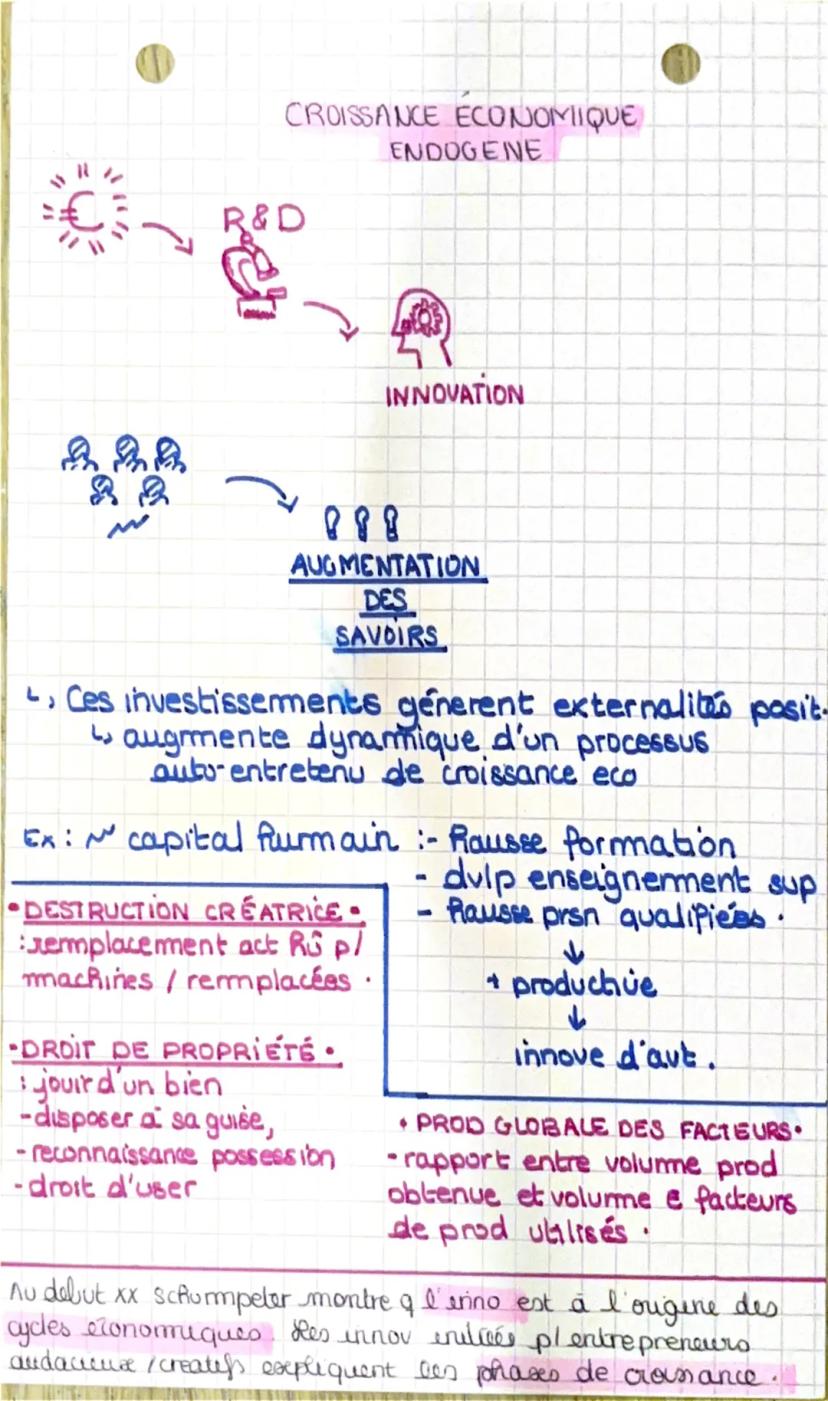 CROISSANCE ÉCONOMIQUE
ENDOGENE
€
R&D
INNOVATION
AUGMENTATION
DES
SAVOIRS
↳ Ces investissements génerent externalités posit.
↳ augmente dynamique d'un processus
auto-entretenu de croissance eco
Ex : capital humain :- hausse formation
- dvlp enseignement sup
- hausse prsn qualifiées .
↓
+ productive
↓
innove d'avt .
• DESTRUCTION CRÉATRICE •
: remplacement act p/
machines / remplacées .
• DROIT DE PROPRIÉTÉ •
: jouir d'un bien
- disposer à sa guise,
- reconnaissance possession
- droit d'user
• PROD GLOBALE DES FACTEURS •
- rapport entre volume prod
obtenue et volume facteurs
de prod utilisés .
Au debut xx Schumpeter montre q l'inno est à l'origine des
cycles économiques. Les innov p/ entrepreneurs
audacieux / creatifs expliquent les phases de croissance .